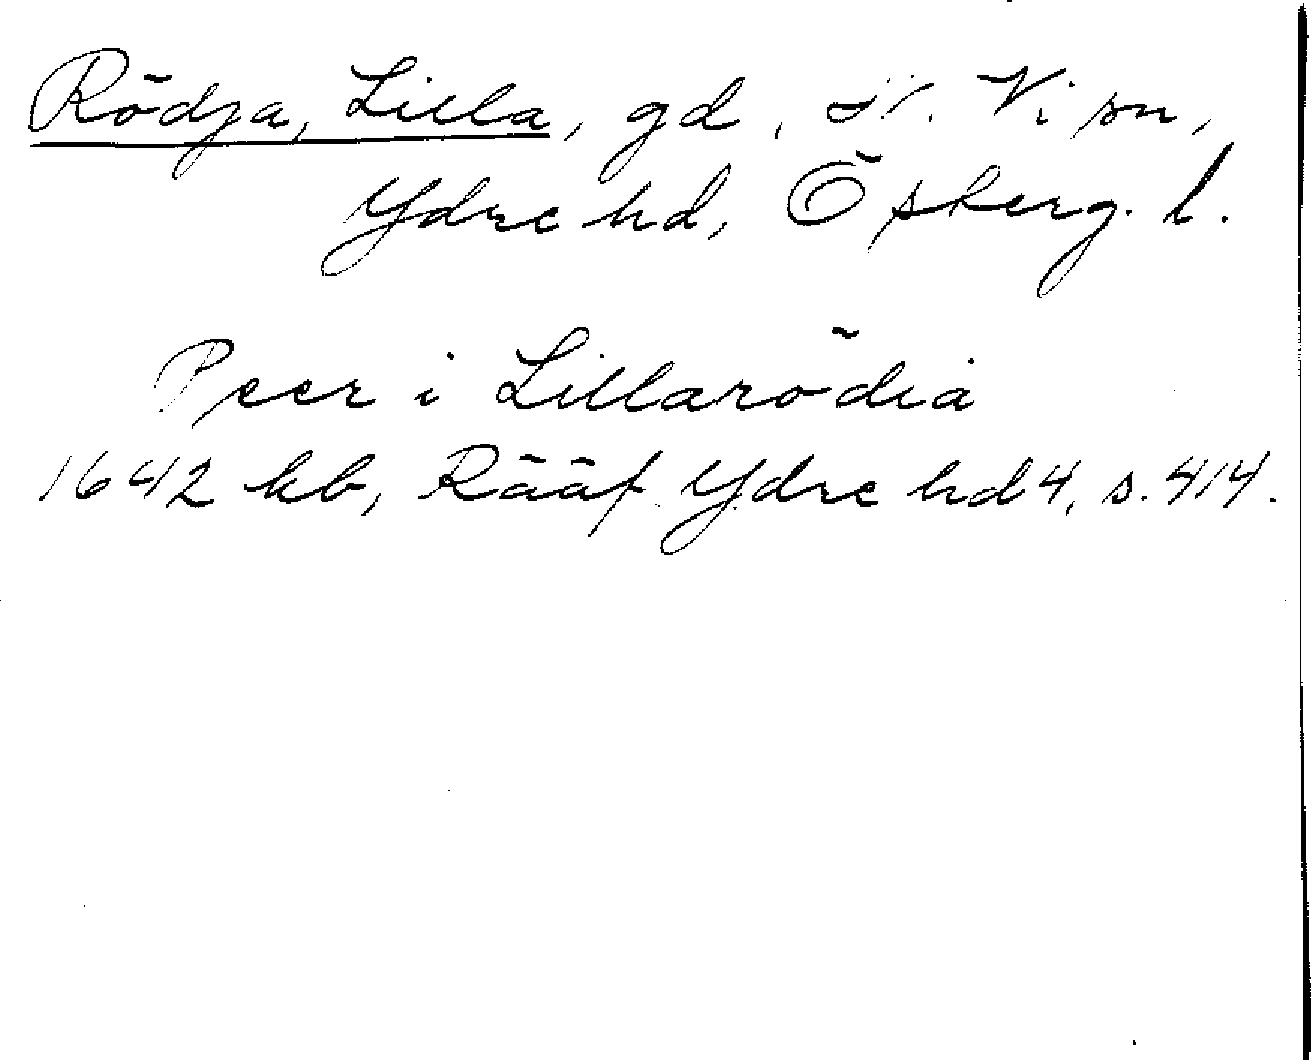 Rödja, Lilla, gd, N. Vi sn,
Ydre hd, Ö skerg. l.
Peer i Lillarödia
1642 kb, Rääf Ydre hd 4, s. 414.